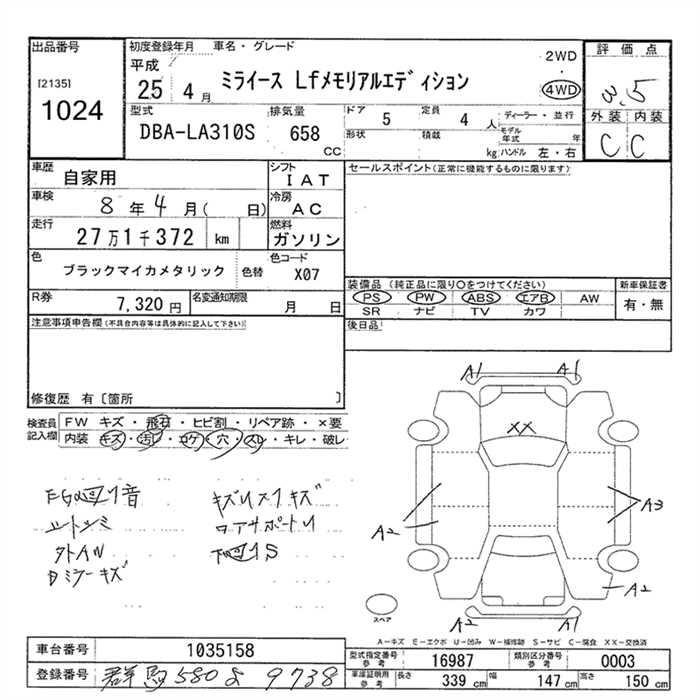 出品番号
[2135]
1024
初度登録年月 車名・グレード
平成
25 4月
ミライース Lfメモリアルエディション
2WD
・
4WD
評価点
3.5
外装 内装
C C
型式
DBA-LA310S
排気量
658
cc
ドア 5
定員 4 人
ディーラー・並行
形状
積載
kg
モデル年式 年
ハンドル 左・右
車歴 自家用
シフト IAT
車検 8年4月( 日)
冷房 AC
走行 27万1千372 km
燃料 ガソリン
色 ブラックマイカメタリック 色替
色コード X07
R券 7,320円
名変通知期限 月 日
セールスポイント(正常に機能するものに限ります)
装備品 (純正品に限り○をつけてください)
PS PW ABS エアB AW
SR ナビ TV カワ
新車保証書
有・無
後日品
注意事項申告欄(不具合内容等は具体的に記入して下さい)
修復歴 有〔箇所 〕
検査員記入欄
FW キズ・飛石・ヒビ割・リペア跡・×要
内装 キズ・汚レ・コゲ・穴・スレ・キレ・破レ
シートシミ
外AW
Dミラーキズ
キズ
コアサポート
A1 A1
XX
A2
A3
A2
A2 A1
スペア
A−キズ E−エクボ U−凹み W−補修跡 S−サビ C−腐食 XX−交換済
車台番号 1035158
登録番号 群馬 580 よ 9738
型式指定番号参考 16987
類別区分番号参考 0003
車庫証明用参考 長さ 339 cm 幅 147 cm 高さ 150 cm